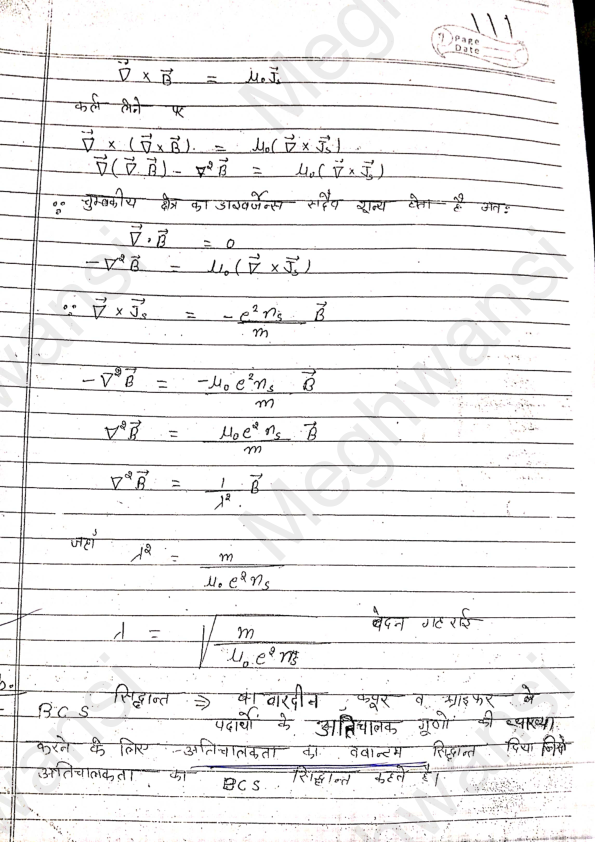 111
Page
Date
∇⃗ × B⃗ = μ₀J⃗s
कर्ल लेने पर
∇⃗ × (∇⃗ × B⃗) = μ₀(∇⃗ × J⃗s)
∇⃗(∇⃗ B⃗) - ∇²B⃗ = μ₀(∇⃗ × J⃗s)
∵ चुम्बकीय क्षेत्र का डाइवर्जेन्स सदैव शून्य होता है अतः
∇⃗ . B⃗ = 0
-∇²B⃗ = μ₀(∇⃗ × J⃗s)
∵ ∇⃗ × J⃗s = - e²ns/m B⃗
-∇²B⃗ = -μ₀e²ns/m B⃗
∇²B⃗ = μ₀e²ns/m B⃗
∇²B⃗ = 1/λ² B⃗
जहाँ λ² = m/μ₀e²ns
λ = √m/μ₀e²ns वेदन गहराई
BCS सिद्धान्त ⇒ वारदीन, कूपर व श्राइफर ने
पदार्थों के अतिचालक गुणो की व्याख्या
करने के लिए अतिचालकता का क्वान्टम सिद्धान्त दिया जिसे
अतिचालकता का BCS सिद्धान्त कहते है।
Meghwansi